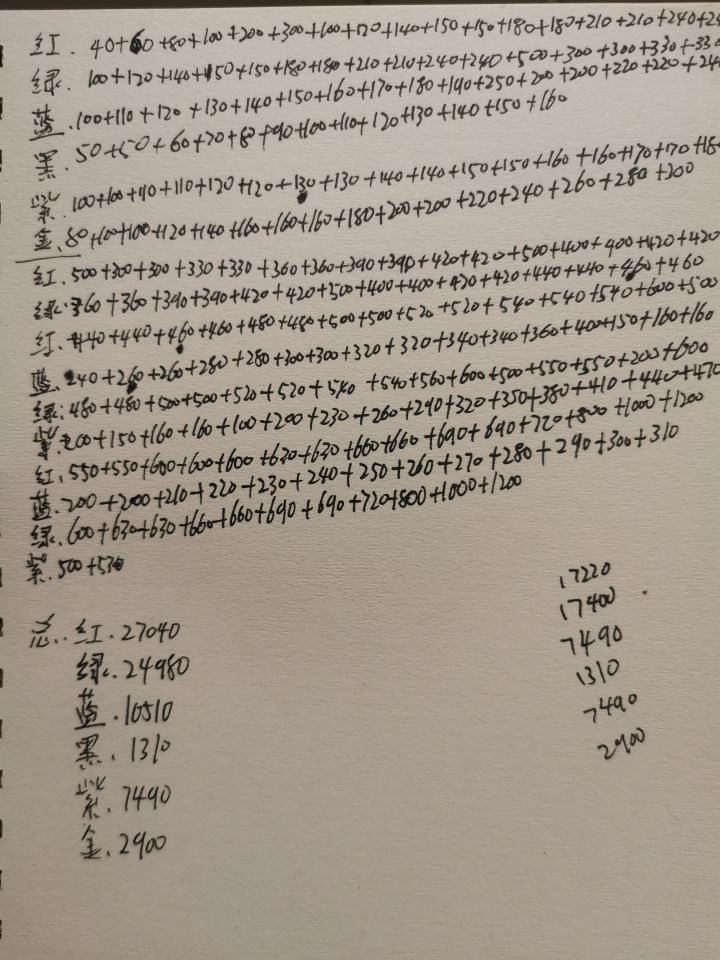 红. 40+60+80+100+200+300+100+120+140+150+150+180+180+210+210+240+24
绿. 100+120+140+150+150+180+180+210+210+240+240+500+300+300+330+330
蓝. 100+110+120+130+140+150+160+170+180+190+250+200+200+220+220+24
黑. 50+50+60+70+80+90+100+110+120+130+140+150+160
紫. 100+100+110+110+120+120+130+130+140+140+150+150+160+160+170+170+180
金. 80+100+100+120+140+160+160+160+180+200+200+220+240+260+280+300
红. 500+300+300+330+330+360+360+390+390+420+420+500+400+400+420+420
绿. 360+360+390+390+420+420+500+400+400+420+420+440+440+460+460
红. 440+440+460+460+480+480+500+500+520+520+540+540+540+600+500
蓝. 240+260+260+280+280+300+300+320+320+340+340+360+400+150+160+160
绿: 480+480+500+500+520+520+540+540+560+600+500+550+550+200+600
紫. 200+150+160+160+100+200+230+260+290+320+350+380+410+440+470
红. 550+550+600+600+600+630+630+660+660+690+690+720+800+1000+1200
蓝. 200+200+210+220+230+240+250+260+270+280+290+300+310
绿. 600+630+630+660+660+690+690+720+800+1000+1200
紫. 500+530
总. 红. 27040
绿. 24980
蓝. 10510
黑. 1310
紫. 7490
金. 2900
17220
17400
7490
1310
7490
2900